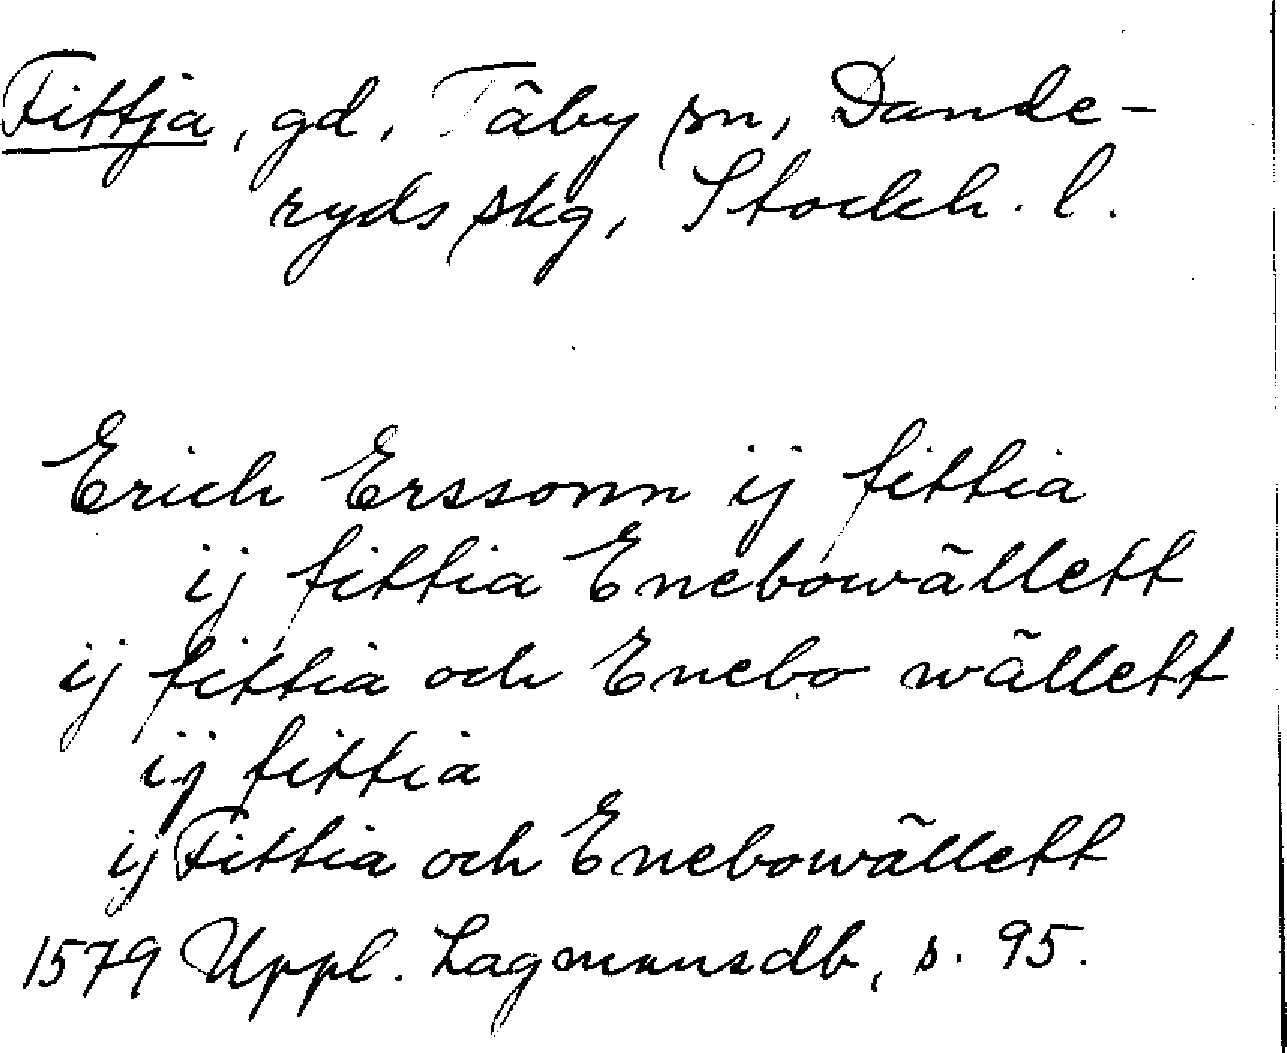 Fittja, gd, Täby sn, Dande-
ryds skg, Stockh. l.
Erich Erssonn ij fittia
ij fittia Enebowällett
ij fittia och Enebo wällett
ij fittia
ij Fittia och Enebowällett
1579 Uppl. Lagmansdb, s. 95.